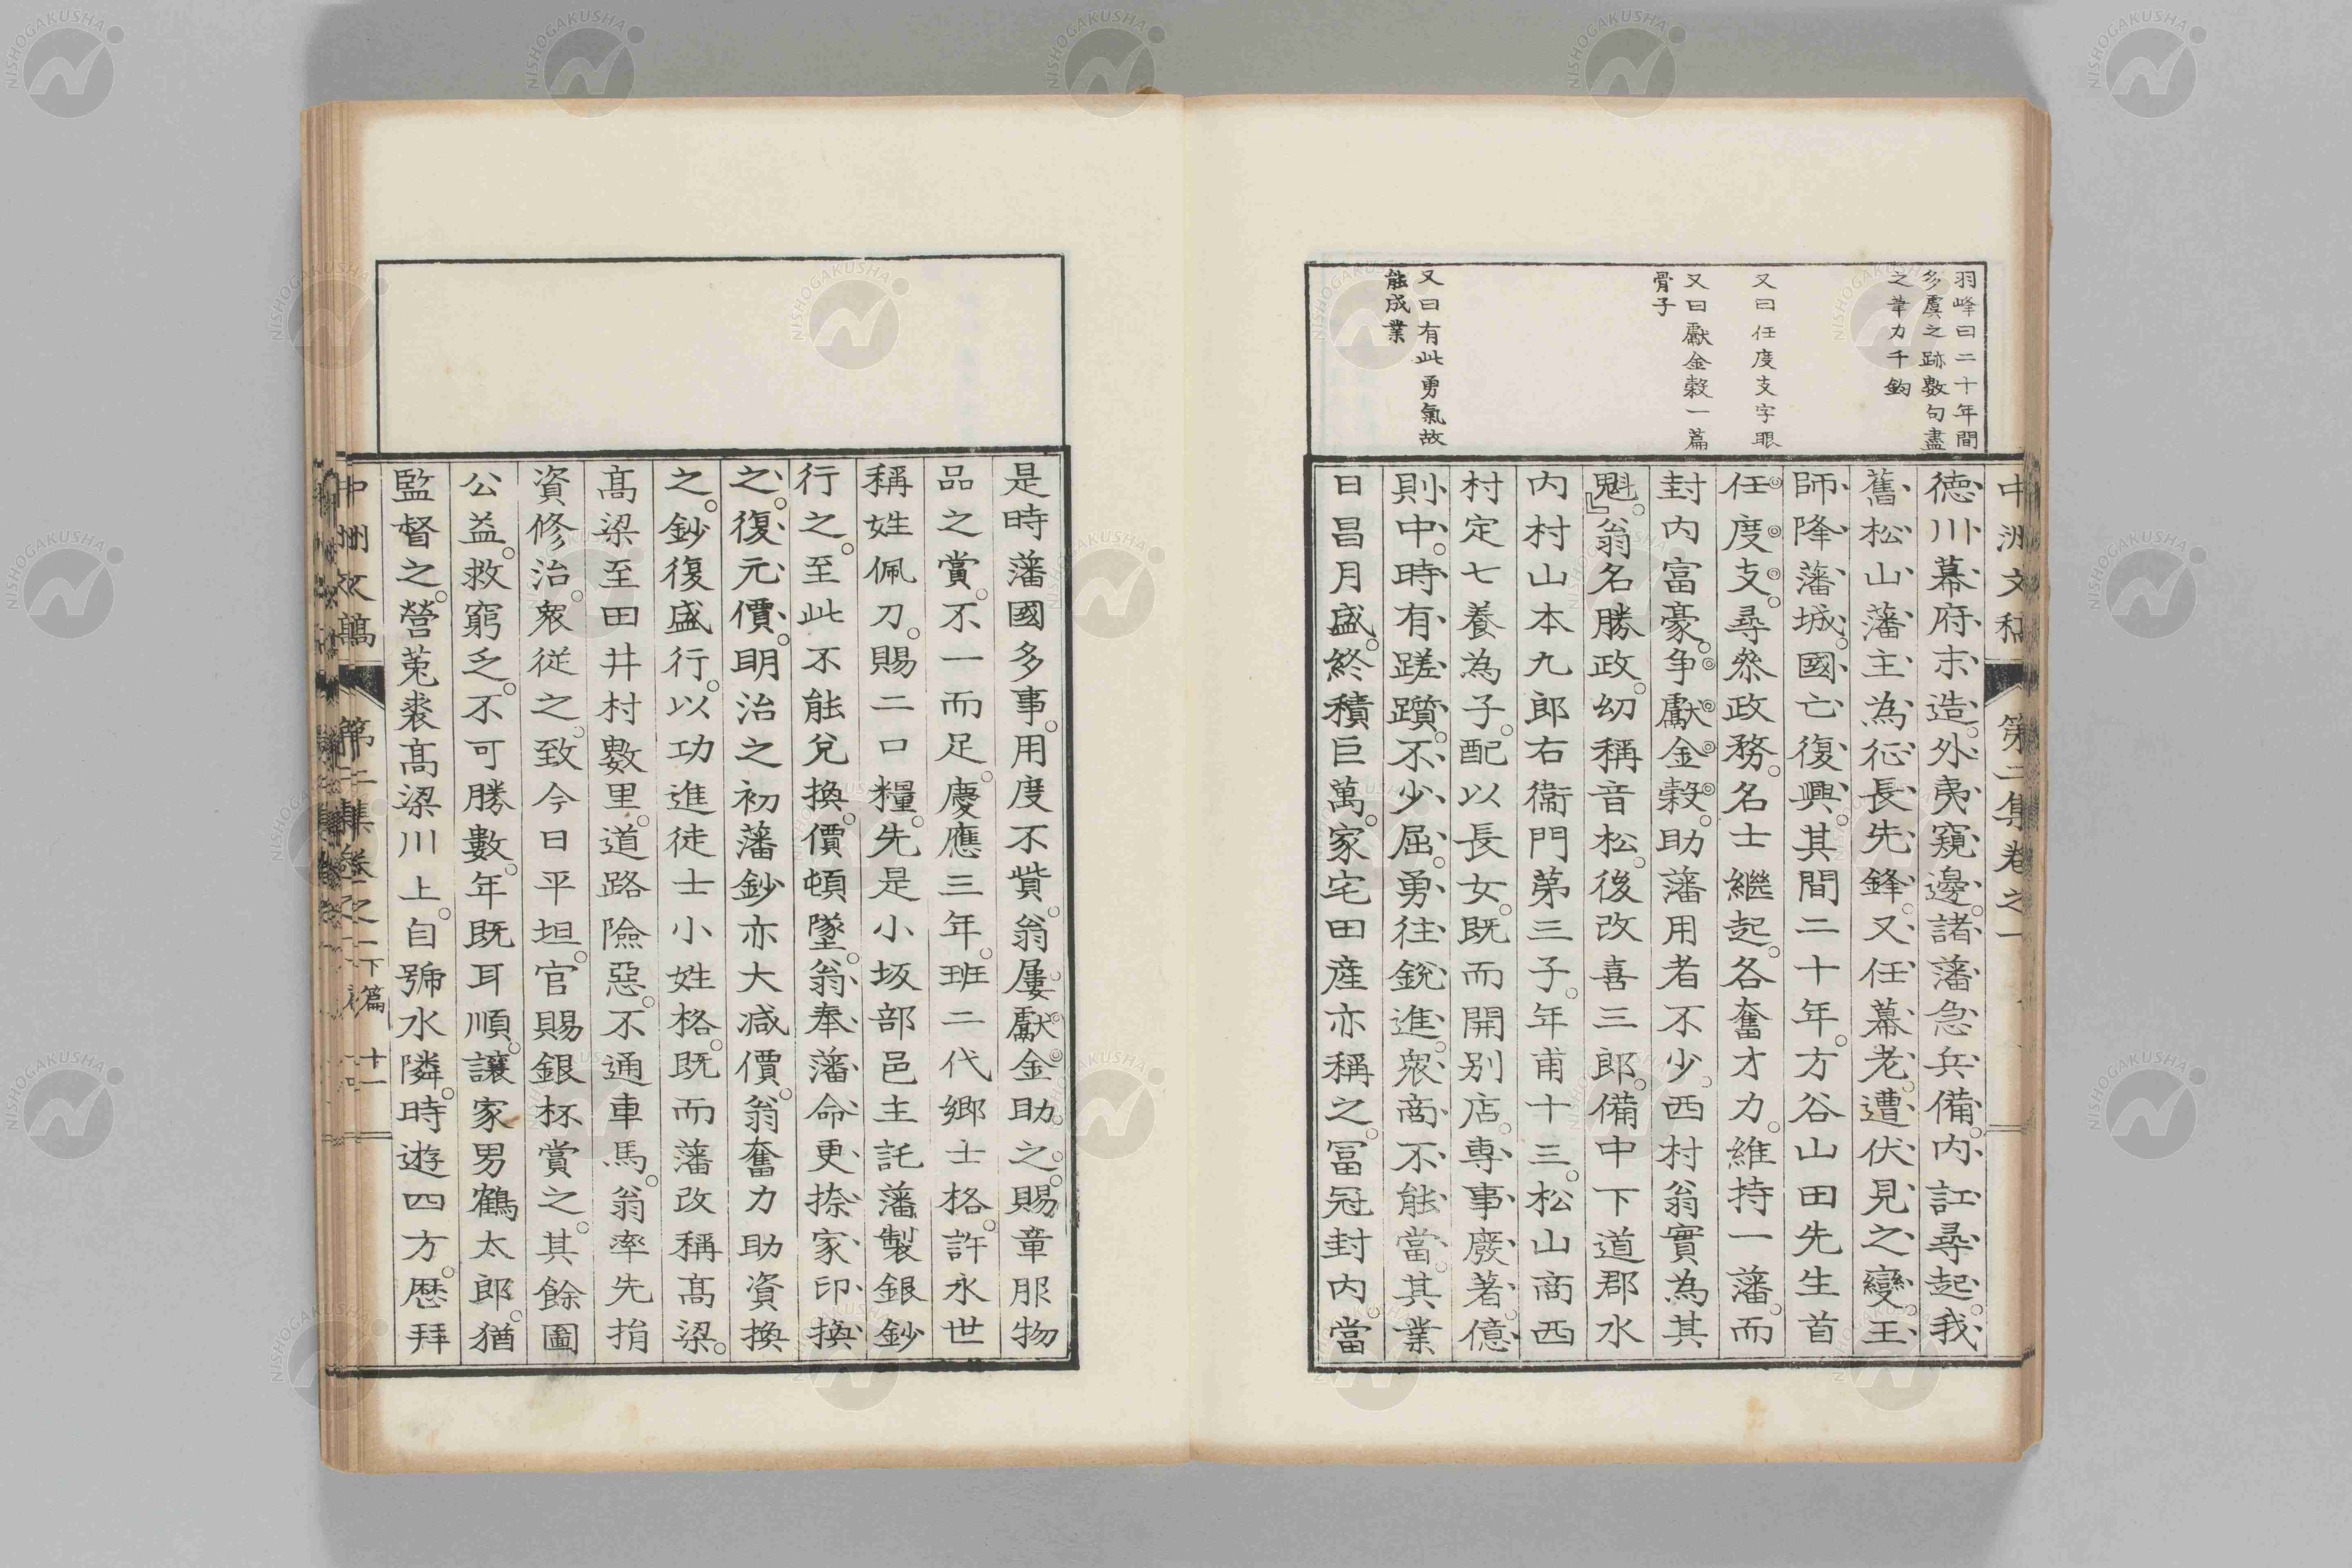 羽峰曰二十年間
多虞之跡數句盡
之筆力千鈞
又曰任度支字眼
又曰獻金穀一篇
骨子
又曰有此勇氣故
能成業
中洲文稿 第二集卷之一
徳川幕府末造。外夷窺邊。諸藩急兵備。内訌尋起。我
舊松山藩主為征長先鋒。又任幕老。遭伏見之變。王
師降藩城。國亡復興。其間二十年。方谷山田先生首
任度支。尋叅政務。名士繼起。各奮才力。維持一藩。而
封内富豪。争獻金穀。助藩用者不少。西村翁實為其
魁。』翁名勝政。幼稱音松。後改喜三郎。備中下道郡水
内村山本九郎右衞門第三子。年甫十三。松山商西
村定七養為子。配以長女。既而開別店。専事廢著。億
則中。時有蹉躓。不少屈。勇往鋭進。衆商不能當。其業
日昌月盛。終積巨萬。家宅田産亦稱之。冨冠封内。當
是時藩國多事。用度不貲。翁屢獻金助之。賜章服物
品之賞。不一而足。慶應三年。班二代郷士格。許永世
稱姓佩刀。賜二口糧。先是小坂部邑主託藩製銀鈔
行之。至此不能兌換。價頓墜。翁奉藩命更捺家印換
之。復元價。明治之初藩鈔亦大减價。翁奮力助資換
之。鈔復盛行。以功進徒士小姓格。既而藩改稱髙梁。
髙梁至田井村數里。道路險惡。不通車馬。翁率先捐
資修治。衆從之。致今日平坦。官賜銀杯賞之。其餘圖
公益。救窮乏。不可勝數。年既耳順。讓家男鶴太郎。猶
監督之。營菟裘髙梁川上。自號水隣。時遊四方。歴拜
中洲文稿 第二集卷之一下篇 十一